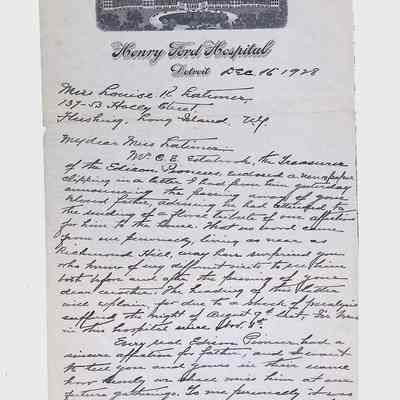 Henry Ford Hospital
Detroit Dec 16 1928
Miss Louise R. Latimer
137-53 Holly Street
Flushing, Long Island, N.Y.
My dear Miss Latimer:
Mr. E. E. the Treasurer
of the Edison Pioneers, enclosed a newspaper
clipping in a letter I had from him yesterday
announcing the passing away of your
beloved father, advising he had attended to
the sending of a floral tribute of our affection
for him to the house. That no word came
from me personally, living as near as
Richmond Hill, may have surprised you
who knew of my different visits to see him
both before and after the passing of your
dear mother. The heading of this letter
will explain, for due to a shock of paralysis
suffered the night of August 9th I've been
in this hospital since Nov.
Every real Edison Pioneer had a
sincere affection for father, and I want
to tell you and yours in their name
how we shall miss him at our
future gatherings. To me personally it was